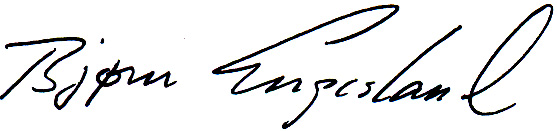 Bjørn Engesland